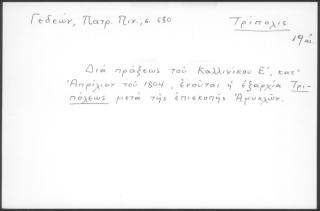 Γεδεών, Πατρ. Πιν., σ. 680
Τρίπολις
19 αἰ.
Διά πράξεως τοῦ Καλλινίκου Ε΄, κατ'
Ἀπρίλιον τοῦ 1804, ἑνοῦται ἡ ἐξαρχία Τρι-
πόλεως μετά τῆς ἐπισκοπῆς Ἀμυκλῶν.